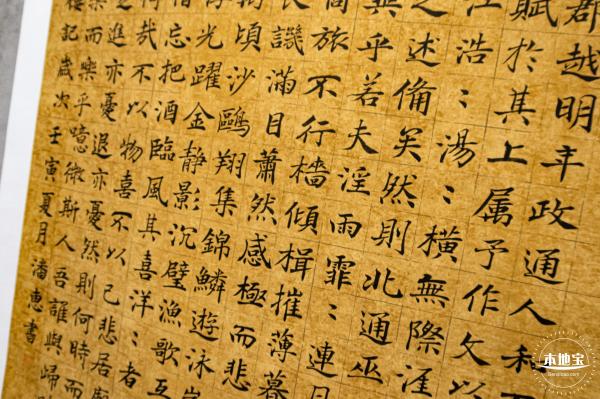 郡越明年政通人和
賦於其上属予作文以
江浩:湯:橫無際涯
之述俻矣然則北通巫
無乎若夫淫雨霏:連日
商旅不行檣傾楫摧薄暮
譏滿目蕭然感極而悲
頃沙鷗翔集錦鱗遊泳岸
光躍金静影沉璧漁歌互
忘把酒臨風其喜洋:者
何哉不以物喜不以己悲居廟
進亦憂退亦憂然則何時而
樂而樂乎噫微斯人吾誰與歸
樓記歲次壬寅夏月潘惠書
本地宝